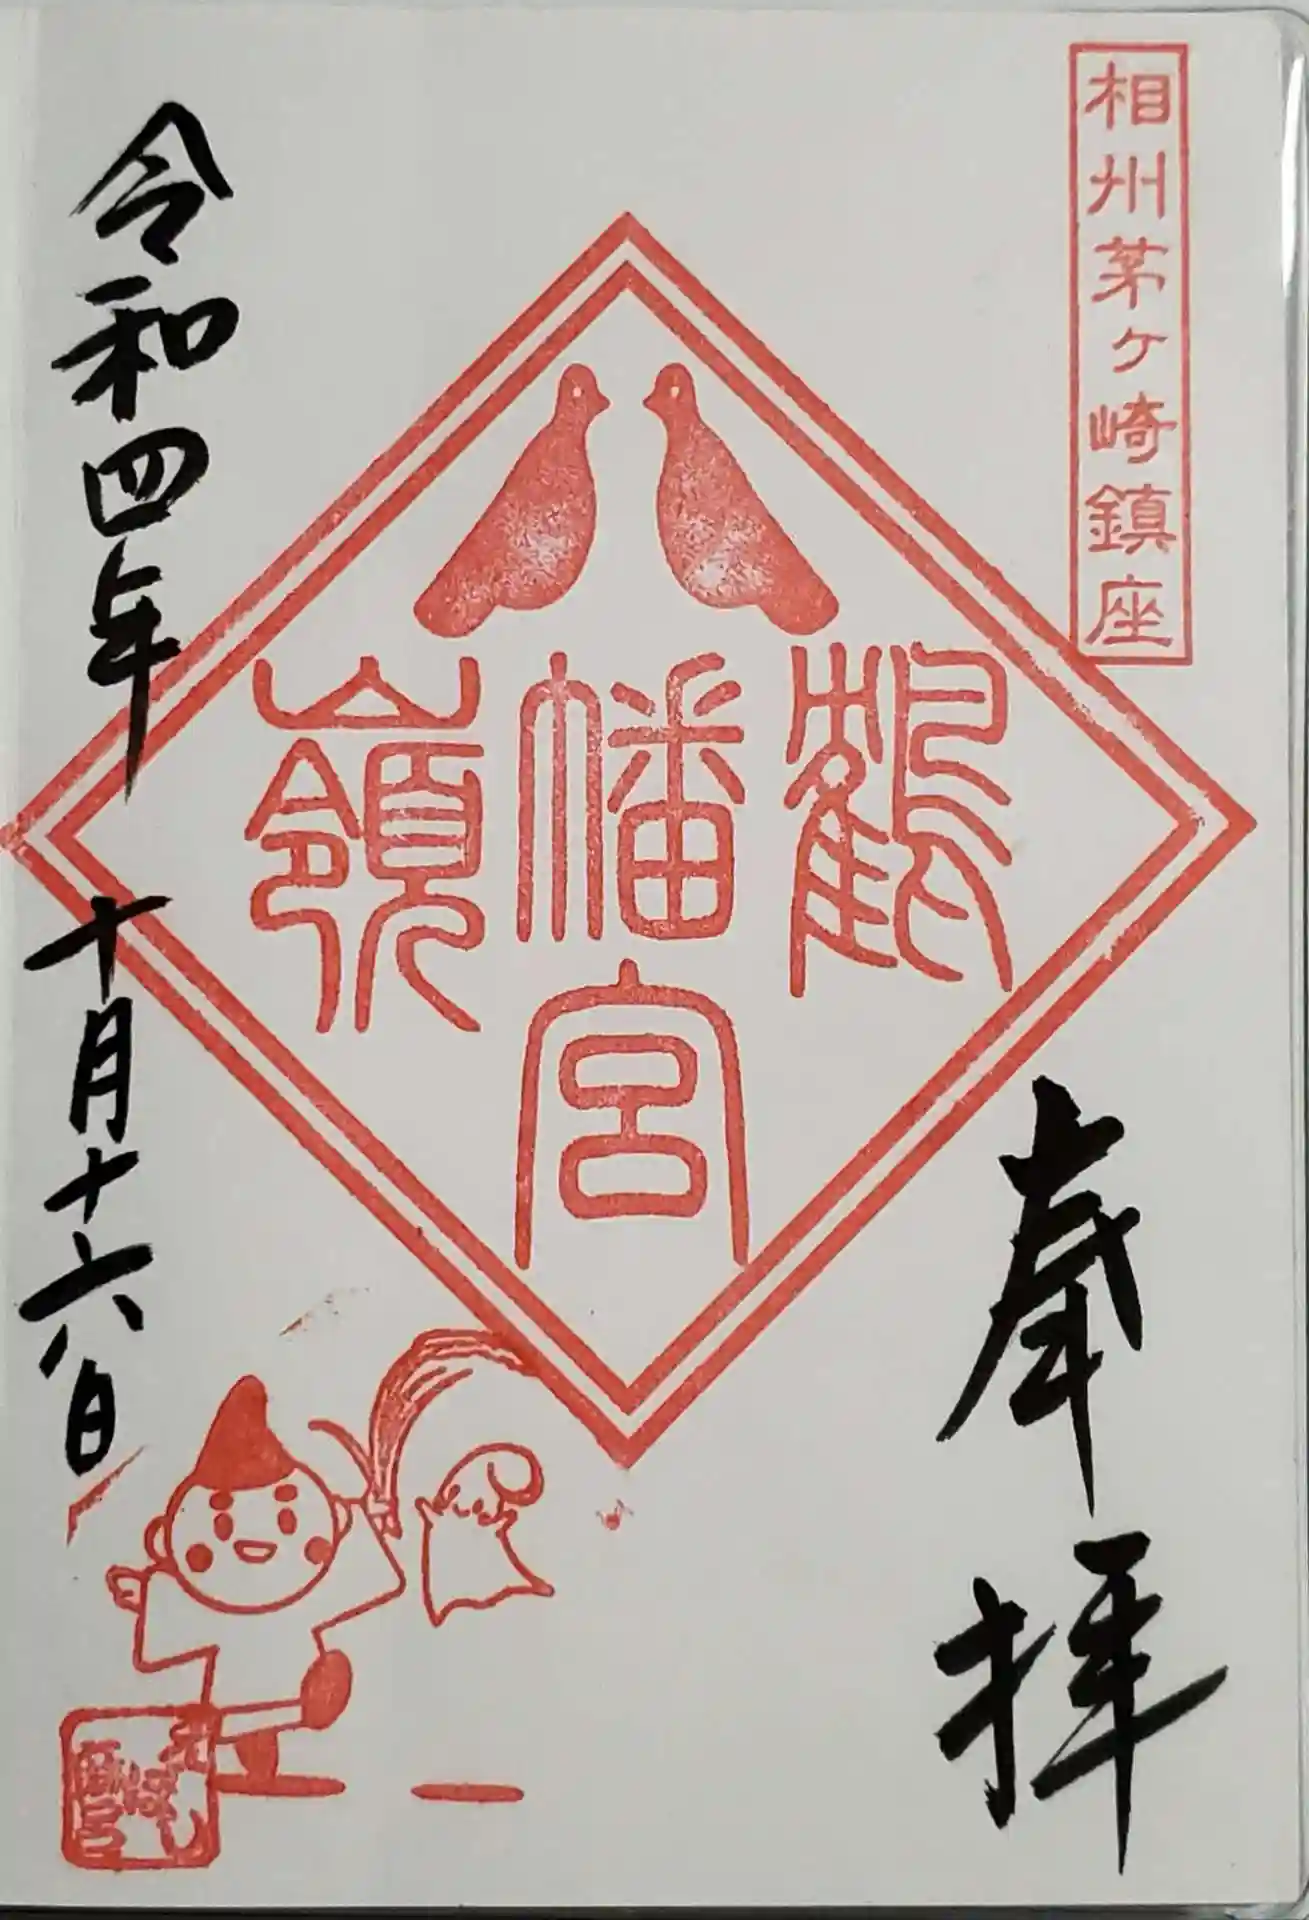 相州茅ケ崎鎮座
奉拝
鶴嶺
八幡宮
令和四年 十月十六日